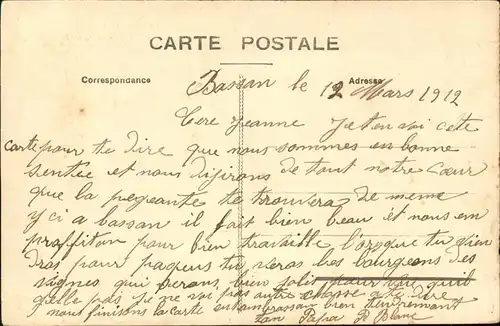 CARTE POSTALE
Correspondance
Adresse
Bassan le 12 Mars 1912
Cere Jeanne Je ten voi cete
carte pour te dire que nous sommes en bonne
sentee et nous dijirons de tout notre Cœur
que la presante te trouvera de meme
y ci a bassan il fait bien beau et nous em
proffiton pour bien travaille lorsque tu vien
dras pour paques tu veras les bourgons des
vignes qui serons bien joli pour vu quil
gelle pas je ne voi pas autre chose a te dire
nous finisons la carte en tembrassan bien
ton Papa P Blanc